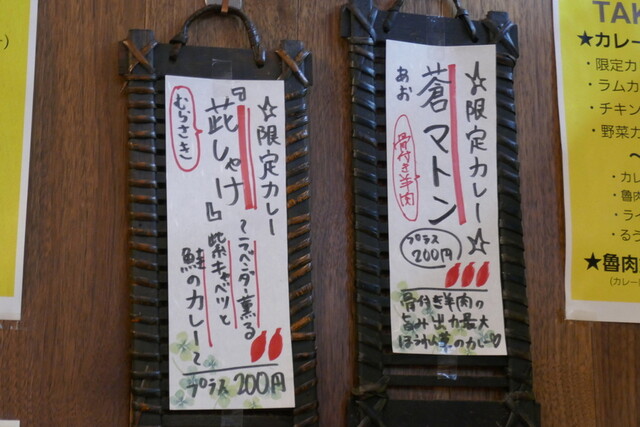 ☆限定カレー
『茈しゃけ』
むらさき
〜ラベンダー薫る
紫キャベツと
鮭のカレー〜
プラス200円
☆限定カレー☆
蒼マトン
あお
骨付き羊肉
プラス
200円
骨付き羊肉の
旨み出力最大
ほうれん草のカレー♡
TAK
★カレー
・限定カ
・ラムカ
・チキン
・野菜カ
〜
・カレ
・魯肉
・ライ
・るう
★魯肉
(カレー